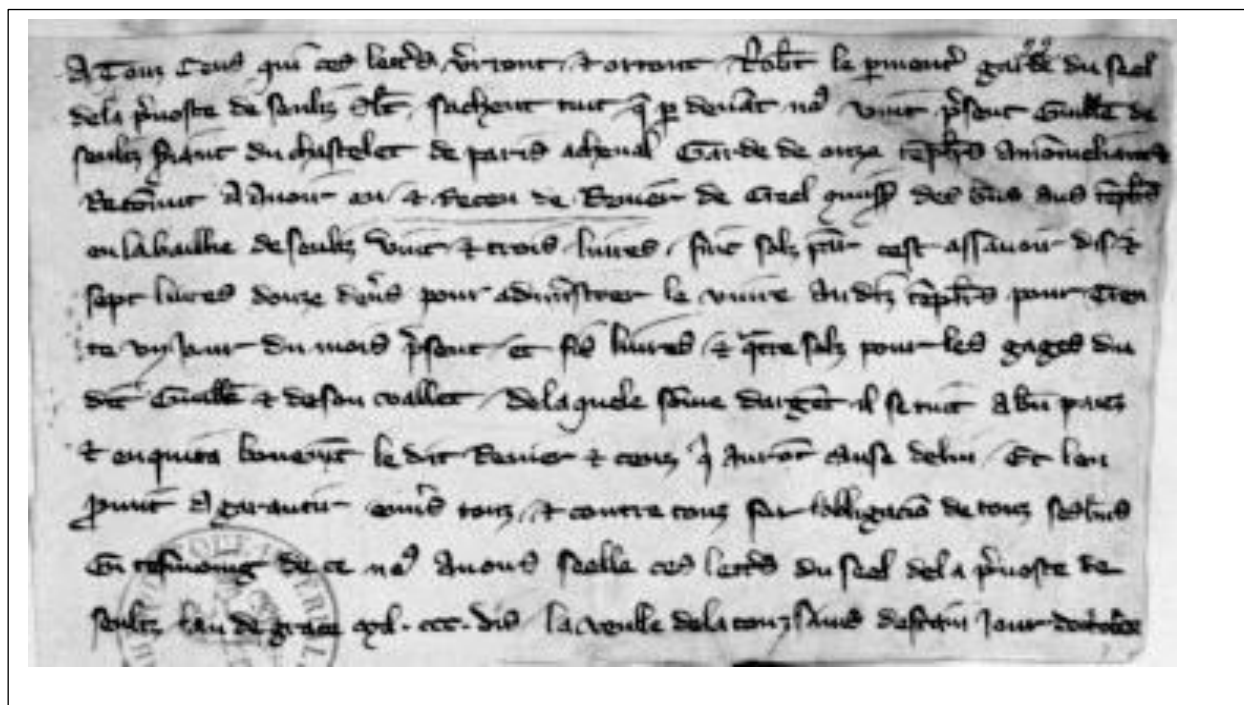 A Touz Ceus qui ces lettres verront & orront Robt le permentr garde du seel
de la pruoste de senliz salt sachent tuit q par deuant no9 vint present Guille de
senliz seriant du chastelet de paris a cheual Garde de onze templrs
Reconnut A Auoir eu & Receu de Renier de Creel des biens aus templrs
en la baillie de senliz vint & trois liures cest assauoir dis &
sept liures douze deners pour administrer le viure Ausdiz templrs pour tren
te vn Jour du mois present et sis liures & qatre solz pour les gages du
dit Guille & de son vallet de la quele somme dargent il se tint A bien paiez
& en quita bonement le dit Renier & touz q Auront cause de lui Et leu
promit A garantir enuers touz & contre touz sur lobligacion de touz ses biens
En tesmoing de ce no9 Auons seelle ces lettres du seel de la pruoste de
senliz lan de grace mil ccc dis la veille de la touz sains Jour doctobre